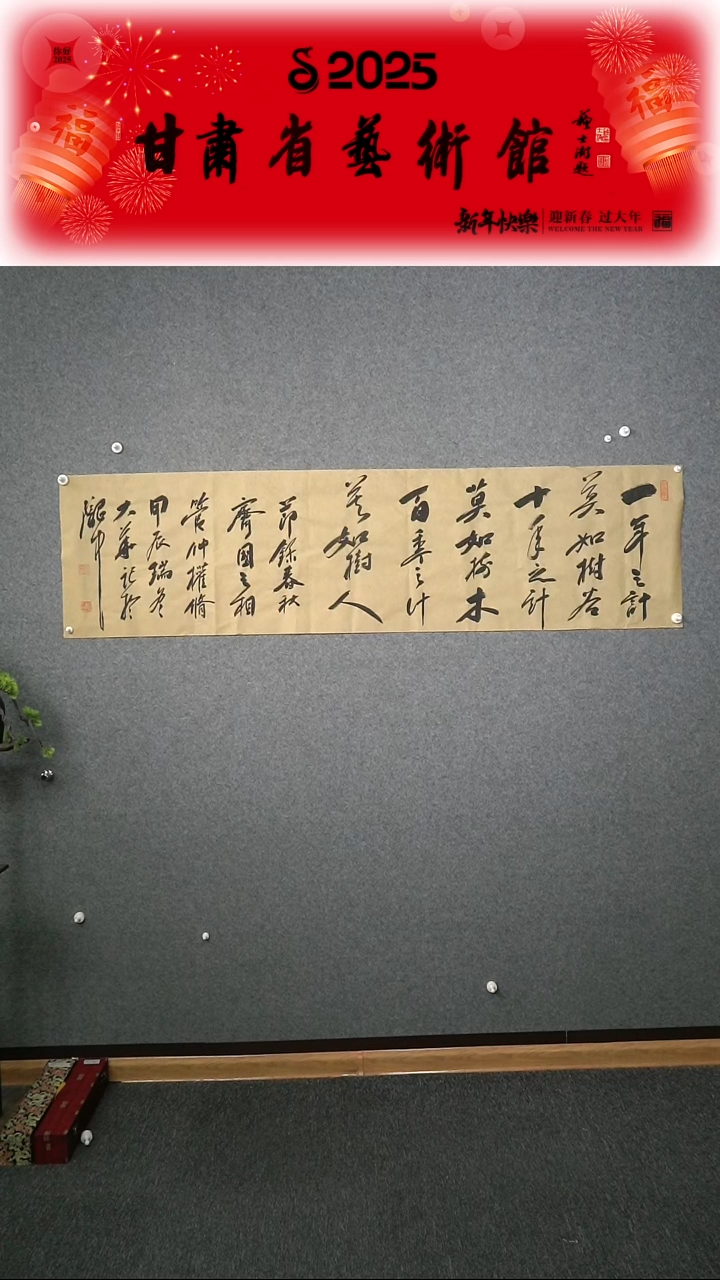 你好
2025
2025
福
福
甘肅省藝術館
新年快樂
迎新春 过大年
WELCOME THE NEW YEAR
福
一年之計
莫如樹谷
十年之計
莫如樹木
百年之計
莫如樹人
節錄春秋
齊國之相
管仲權脩
甲辰瑞冬